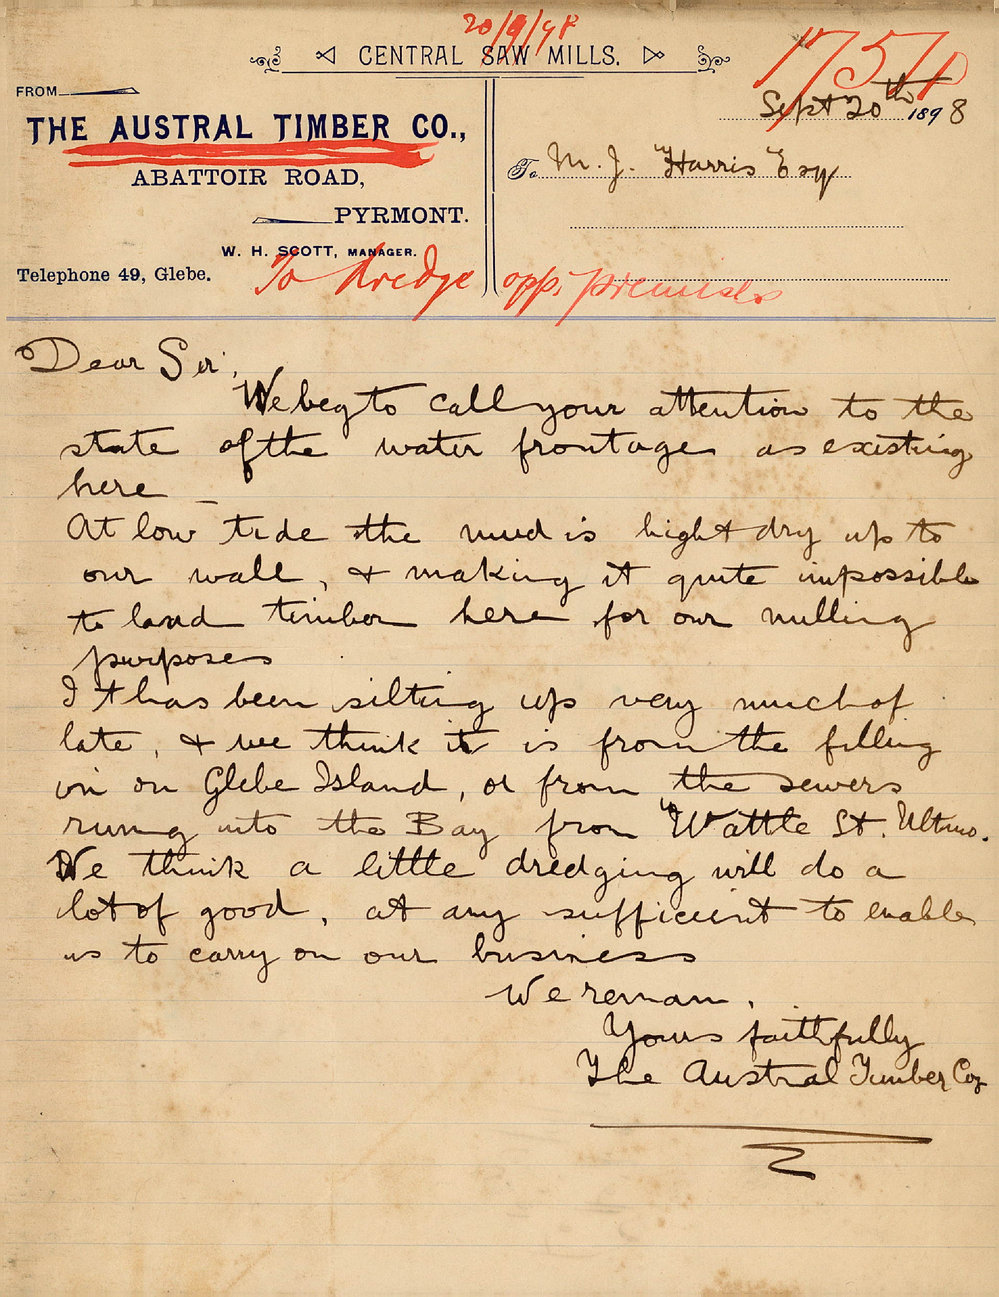 20/9/98
CENTRAL SAW MILLS.
FROM
THE AUSTRAL TIMBER CO.,
ABATTOIR ROAD,
PYRMONT.
W. H. SCOTT, MANAGER.
Telephone 49, Glebe.
Sept 20th 1898
To M. J. Harris Esq
To dredge opp. premises
Dear Sir,
We beg to call your attention to the
state of the water frontage as existing
here -
At low tide the mud is high & dry up to
our wall, & making it quite impossible
to land timber here for our milling
purposes
It has been silting up very much of
late, & we think it is from the filling
in on Glebe Island, or from the sewers
runing into the Bay from Wattle St. Ultimo.
We think a little dredging will do a
lot of good, at any sufficient to enable
us to carry on our business
We remain,
Yours faithfully
The Austral Timber Coy